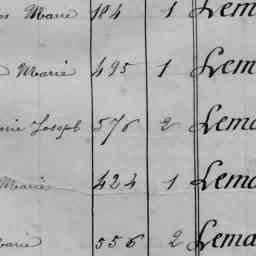 Marie 184 1 Lem
Marie 495 1 Lem
Joseph 576 2 Lema
Marie 424 1 Lema
Marie 556 2 Lema